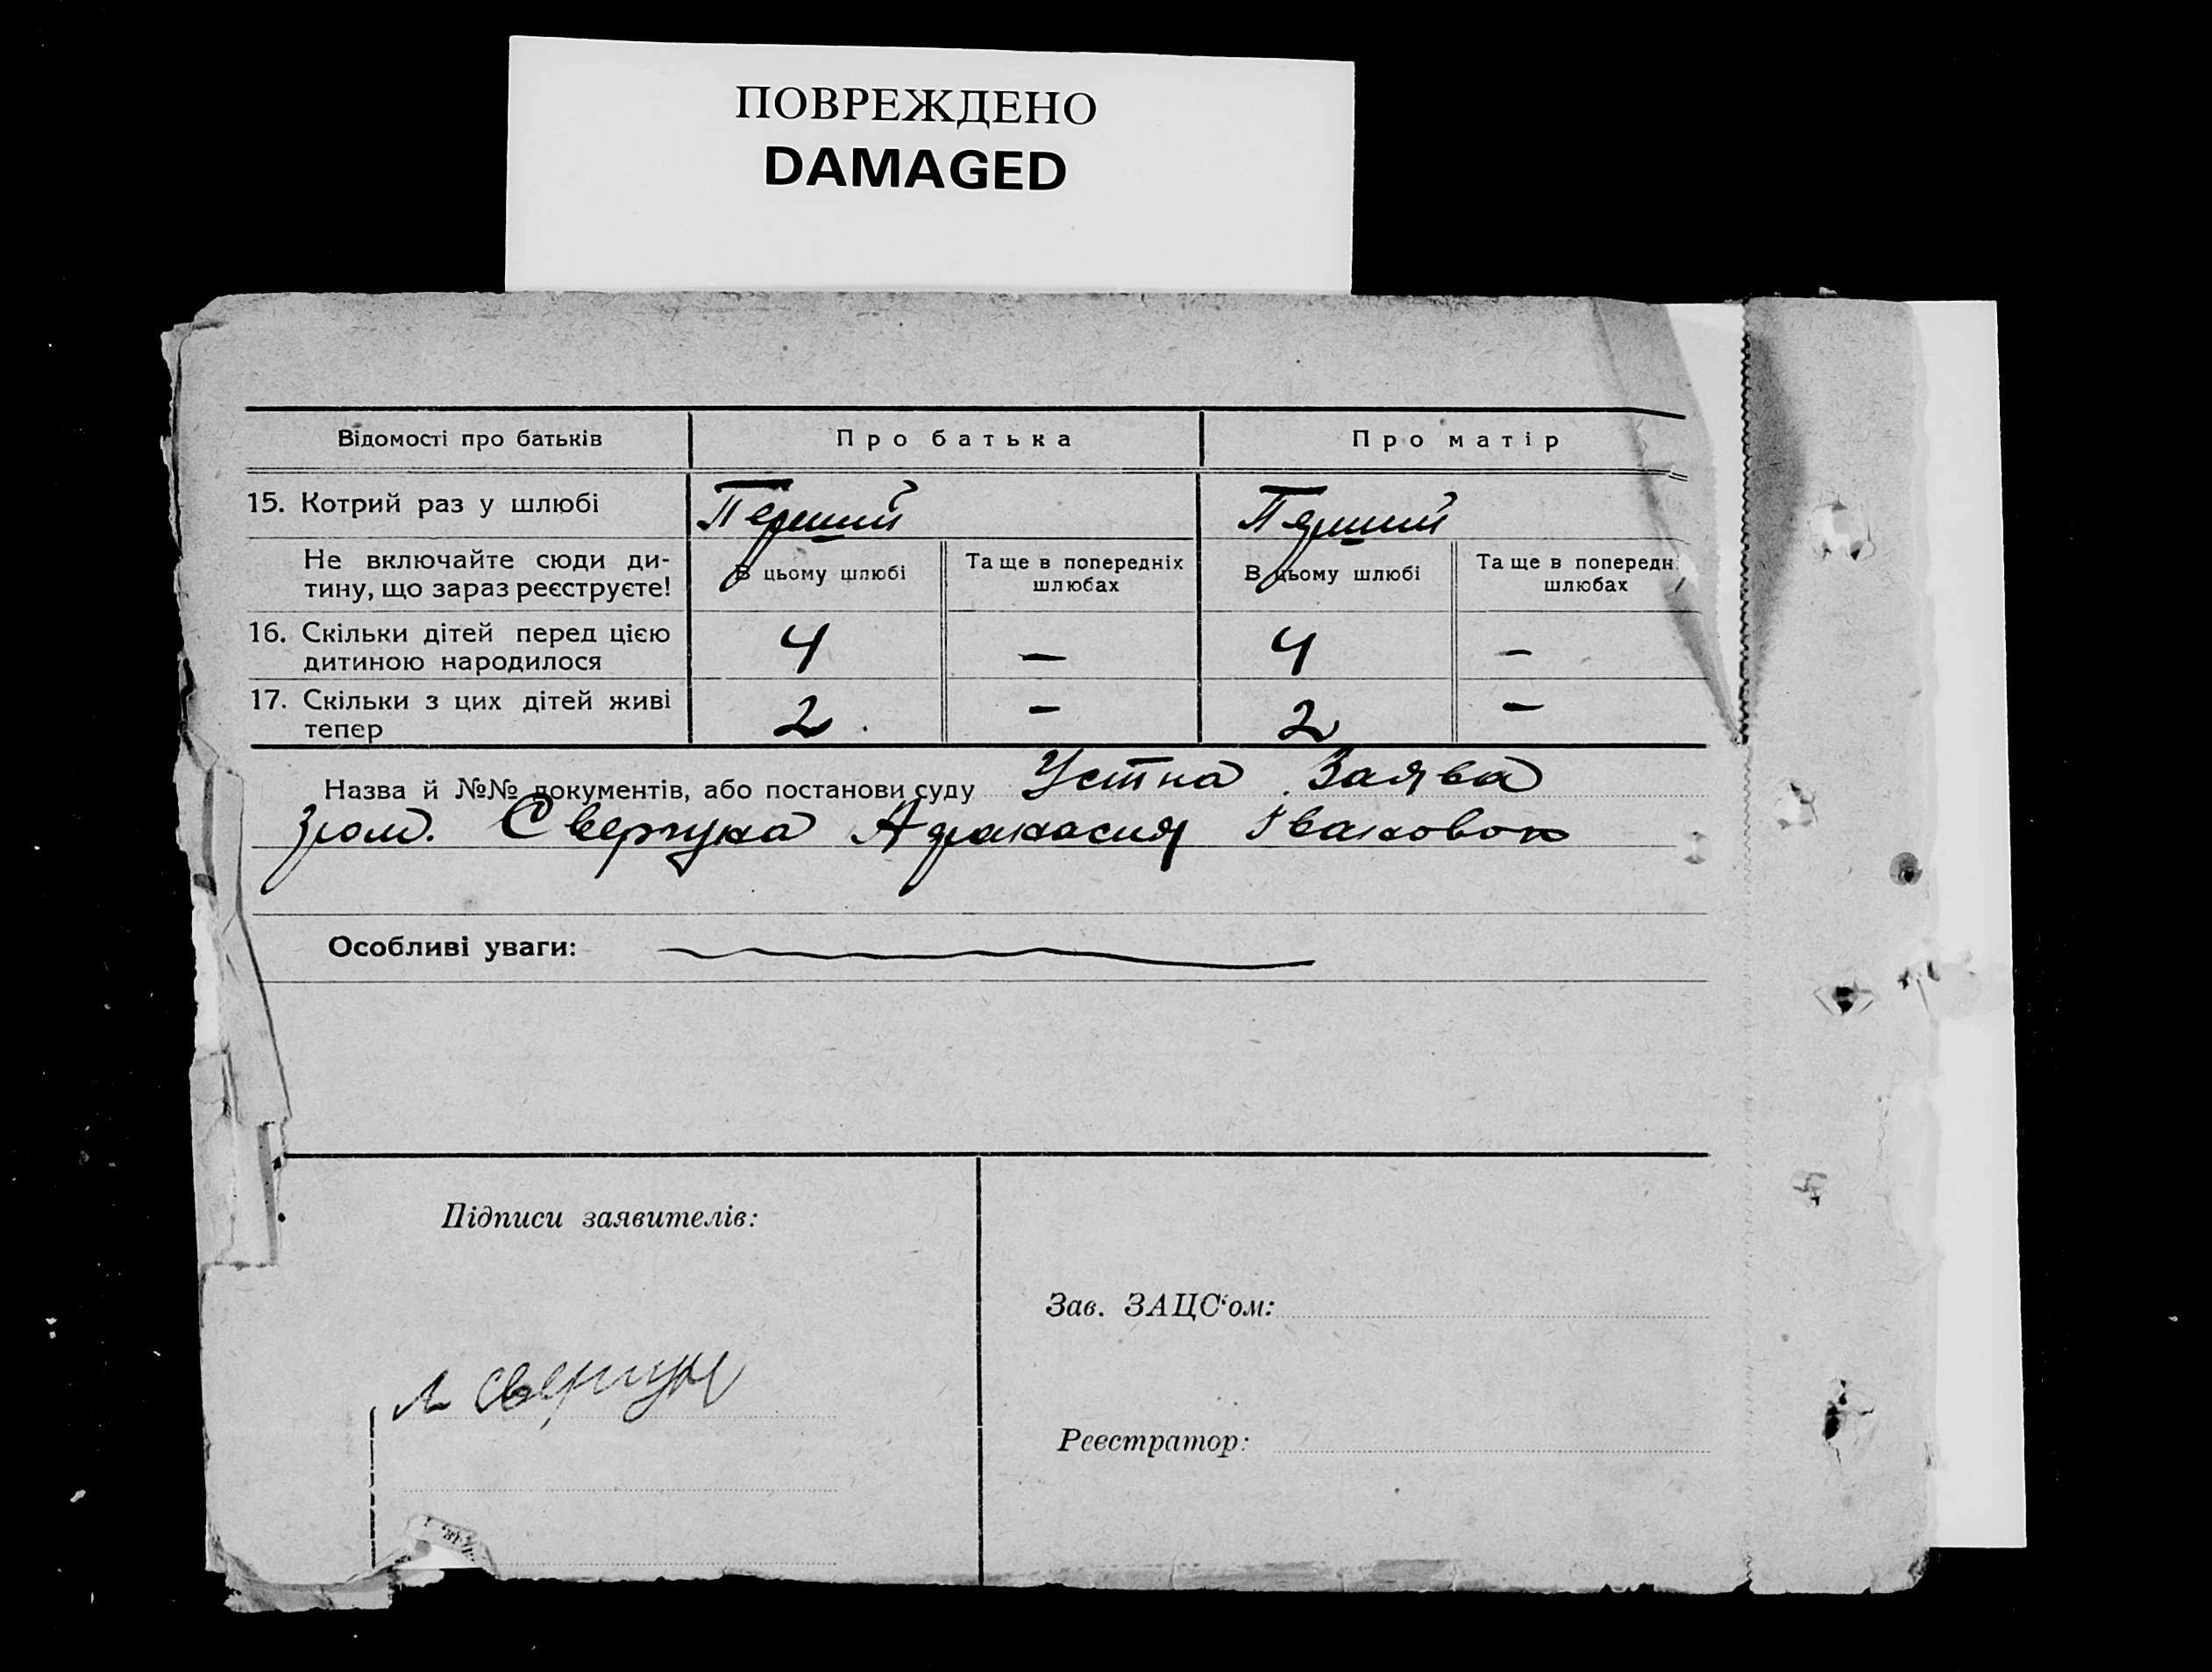 ПОВРЕЖДЕНО
DAMAGED
Відомості про батьків
Про батька
Про матір
15. Котрий раз у шлюбі
Перший
Перший
Не включайте сюди ди-
тину, що зараз реєструєте!
В цьому шлюбі
Та ще в попередніх
шлюбах
В цьому шлюбі
Та ще в попередн
шлюбах
16. Скільки дітей перед цією
дитиною народилося
4
—
4
—
17. Скільки з цих дітей живі
тепер
2
—
2
—
Назва й №№ документів, або постанови суду Устна Заява
гром. Свергуна Афанасия
Особливі уваги:
Підписи заявителів:
Зав. ЗАЦС‘ом:
Реєстратор: